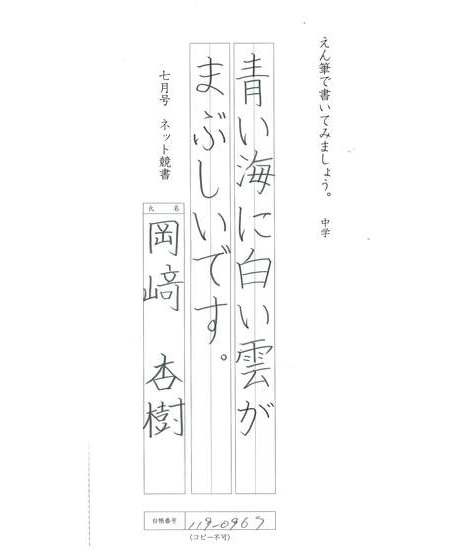 えん筆で書いてみましょう。 中学
青い海に白い雲が
まぶしいです。
七月号 ネット競書
氏名
岡﨑 杏樹
台帳番号 119-0967
(コピー不可)